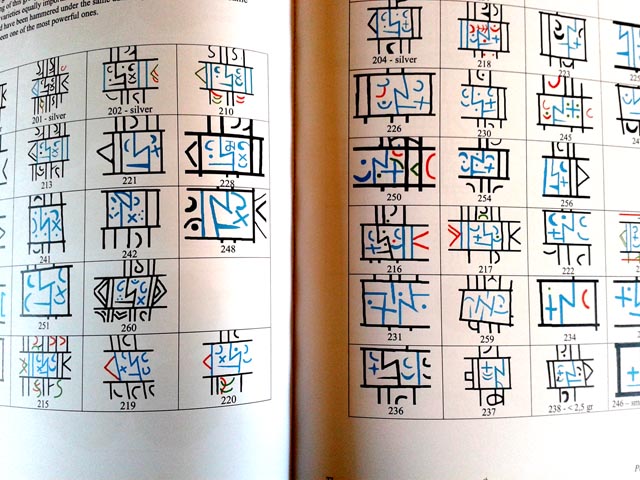 varieties equally impor
d have been hammered under the same
een one of the most powerful ones.
201 - silver
202 - silver
210
213
221
228
241
242
248
251
260
215
219
220
204 - silver
218
223
225
226
230
245
250
254
256
216
217
222
231
259
234
236
237
238 - < 2,5 gr